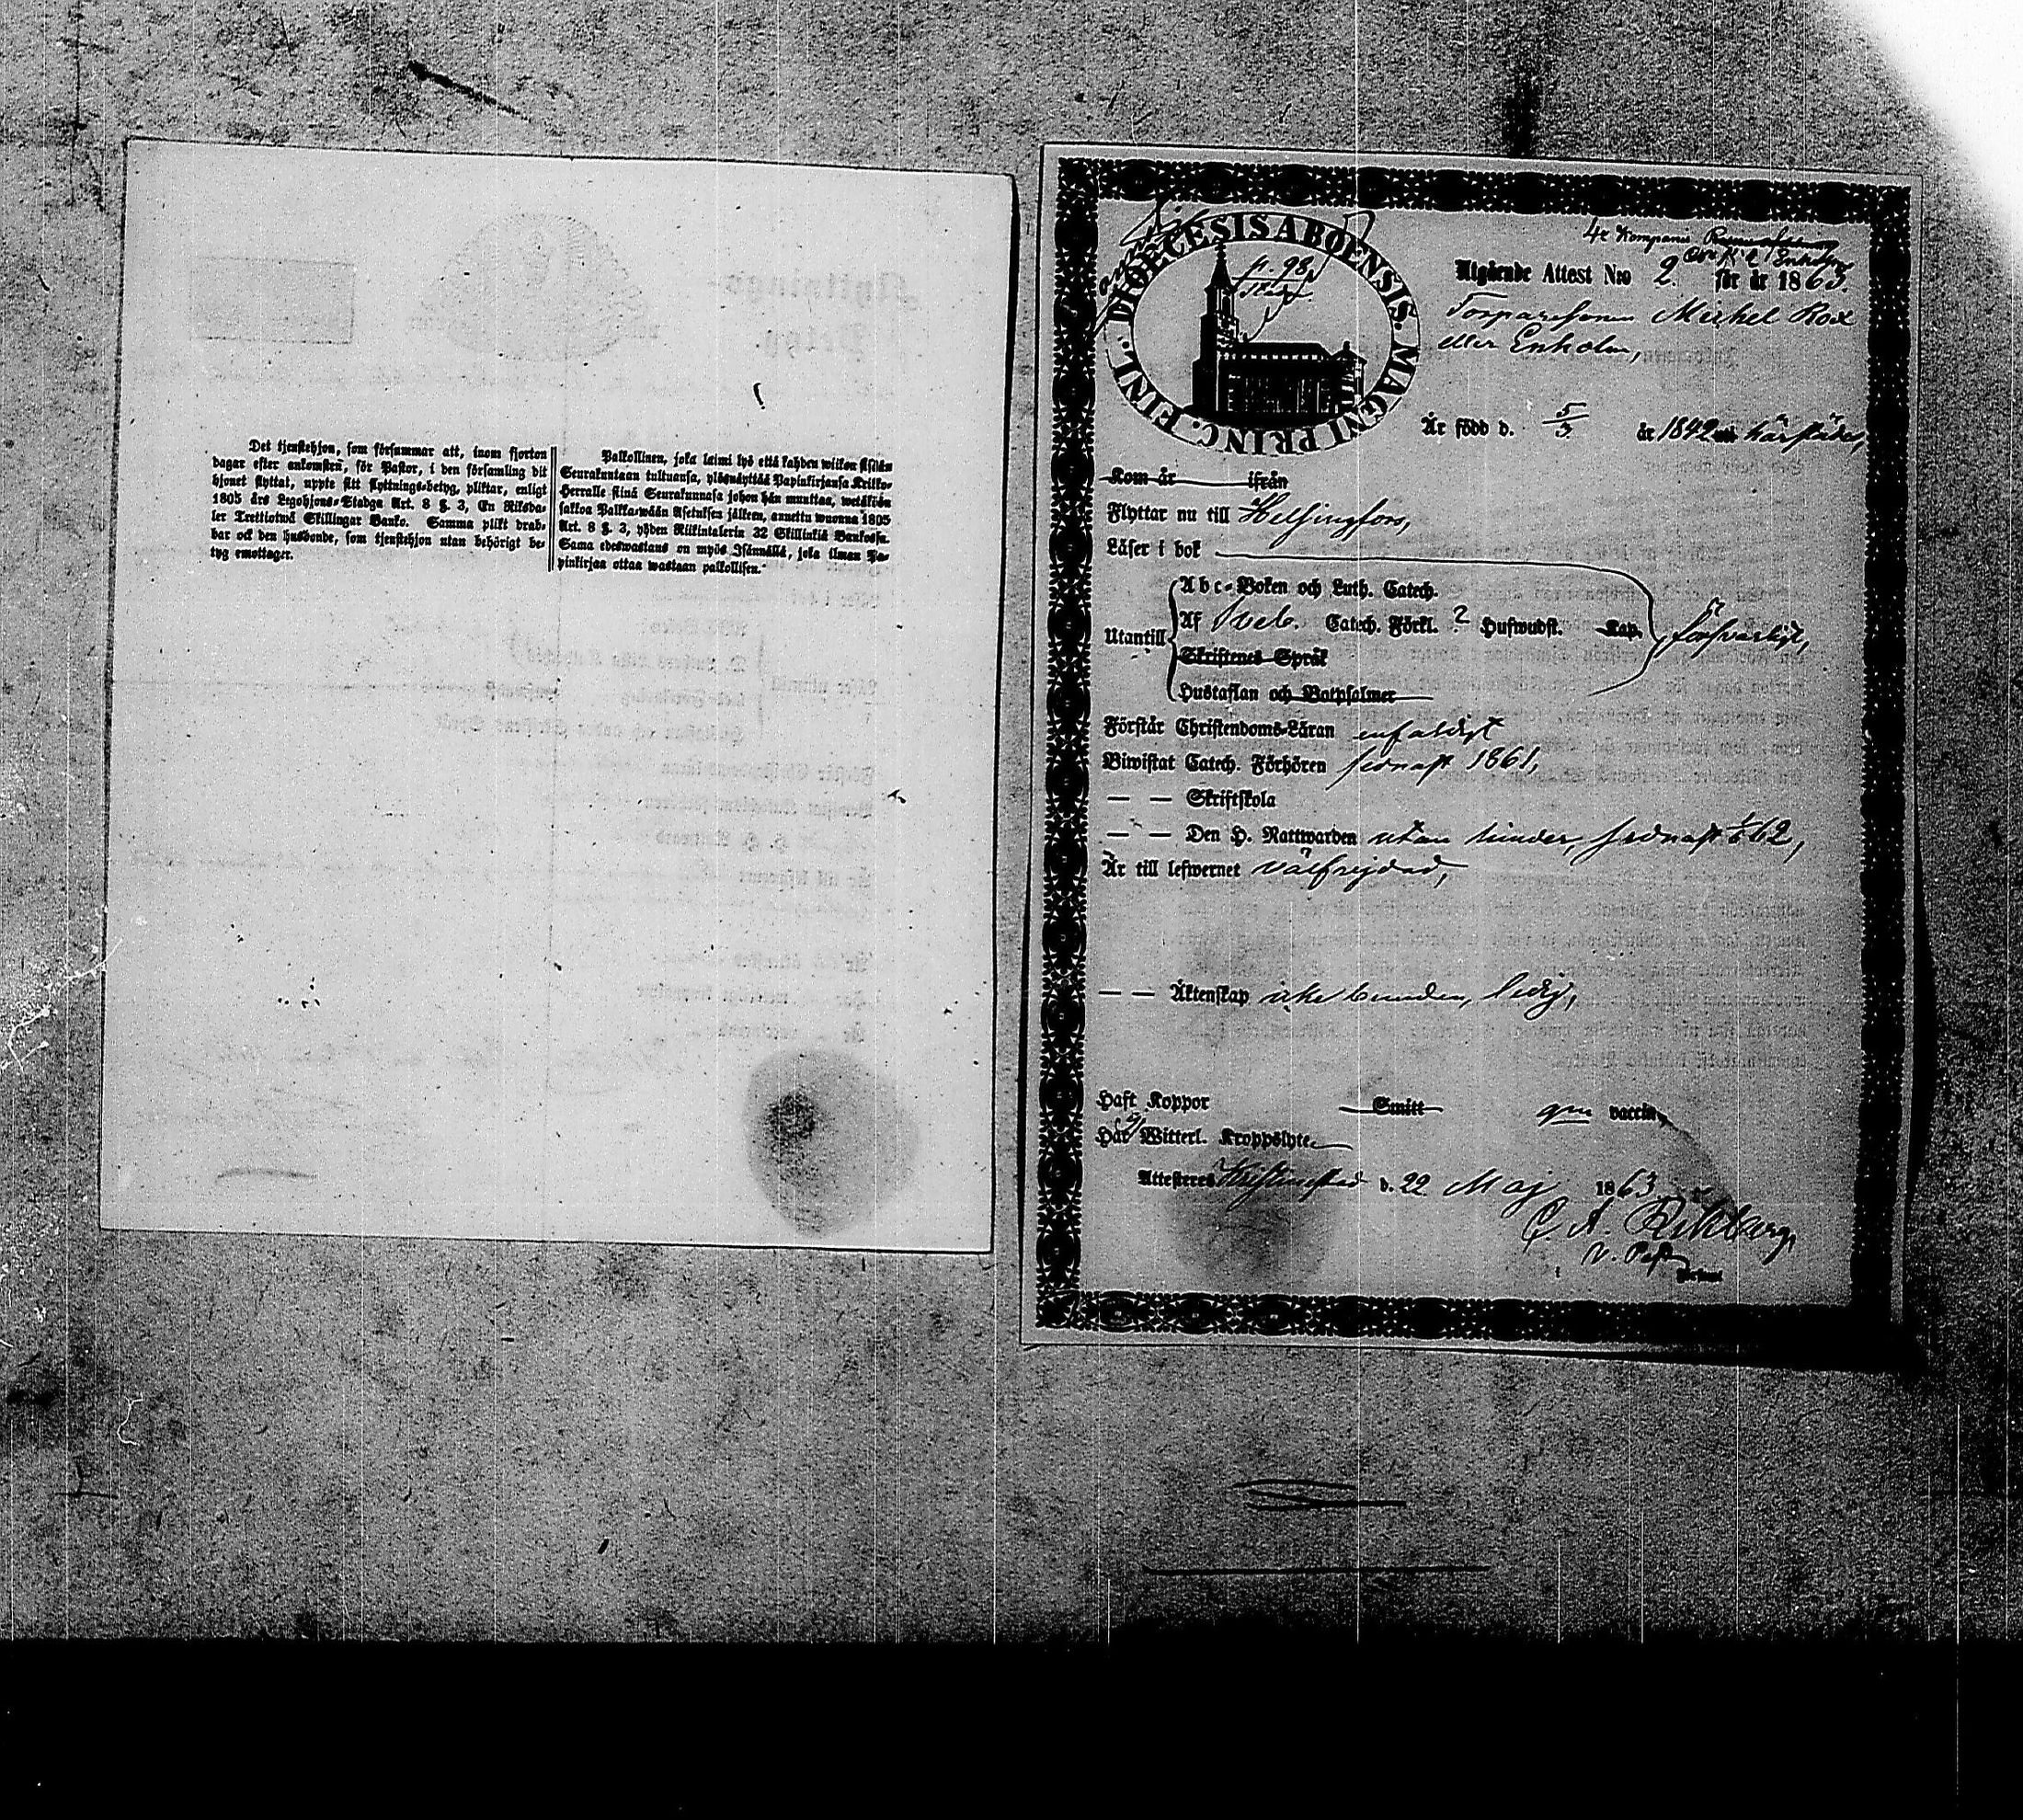 Det tjenstehjon, som försummar att, inom fjorton
dagar efter ankomsten, för Pastor, i den församling dit
hjonet flyttat, uppte sitt flyttnings-betyg, pliktar, enligt
1805 års Legohjons-Stadga Art. 8 §. 3, En Riksda-
ler Trettiotwå Skillingar Banko. Samma plikt drab-
bar ock den husbonde, som tjenstehjon utan behörigt be-
tyg emottager.
Palkollinen, joka laimi lyö että kahden wiikon sisään
Seurakuntaan tultuansa, ylösnäyttää Papinkirjansa Kirkko-
Herralle siinä Seurakunnasa johon hän muuttaa, wetäköön
sakkoa Palkka-wään Asetuksen jälkeen, annettu wuonna 1805
Art. 8 §. 3, yhden Riikintalerin 32 Skillinkiä Bankossa.
Sama edeswastaus on myös Isännällä, joka ilman Pa-
pinkirjaa ottaa wastaan palkollisen.
4e Kompanie
Enholm
DIOECESIS ABOENSIS. MAGNI PRINC. FINL.
Utgående Attest N:o 2. för år 1863.
Torparesonen Mickel Rox
eller Enholm,
Är född d. 5/3 år 1842 härstädes,
Kom år ifrån
Flyttar nu till Helsingfors,
Läser i bok
Utantill
Abc-Boken och Luth. Catech.
Af Sveb. Catech. Förkl. 2 Hufwudst. Kap. försvarligt,
Skriftenes Språk
Hustaflan och Botpsalmer
Förstår Christendoms-Läran enfaldigt
Biwistat Catech. Förhören sednast 1861,
— — Skriftskola
— — Den H. Nattwarden utan hinder, sednast 62,
Är till lefwernet välfrejdad,
— — Äktenskap icke bunden, ledig,
Haft Koppor Smitt gm vaccin
Har ej Witterl. Kroppslyte
Attesteres Kristinestad d. 22 Maj 1863
C A
v. Past